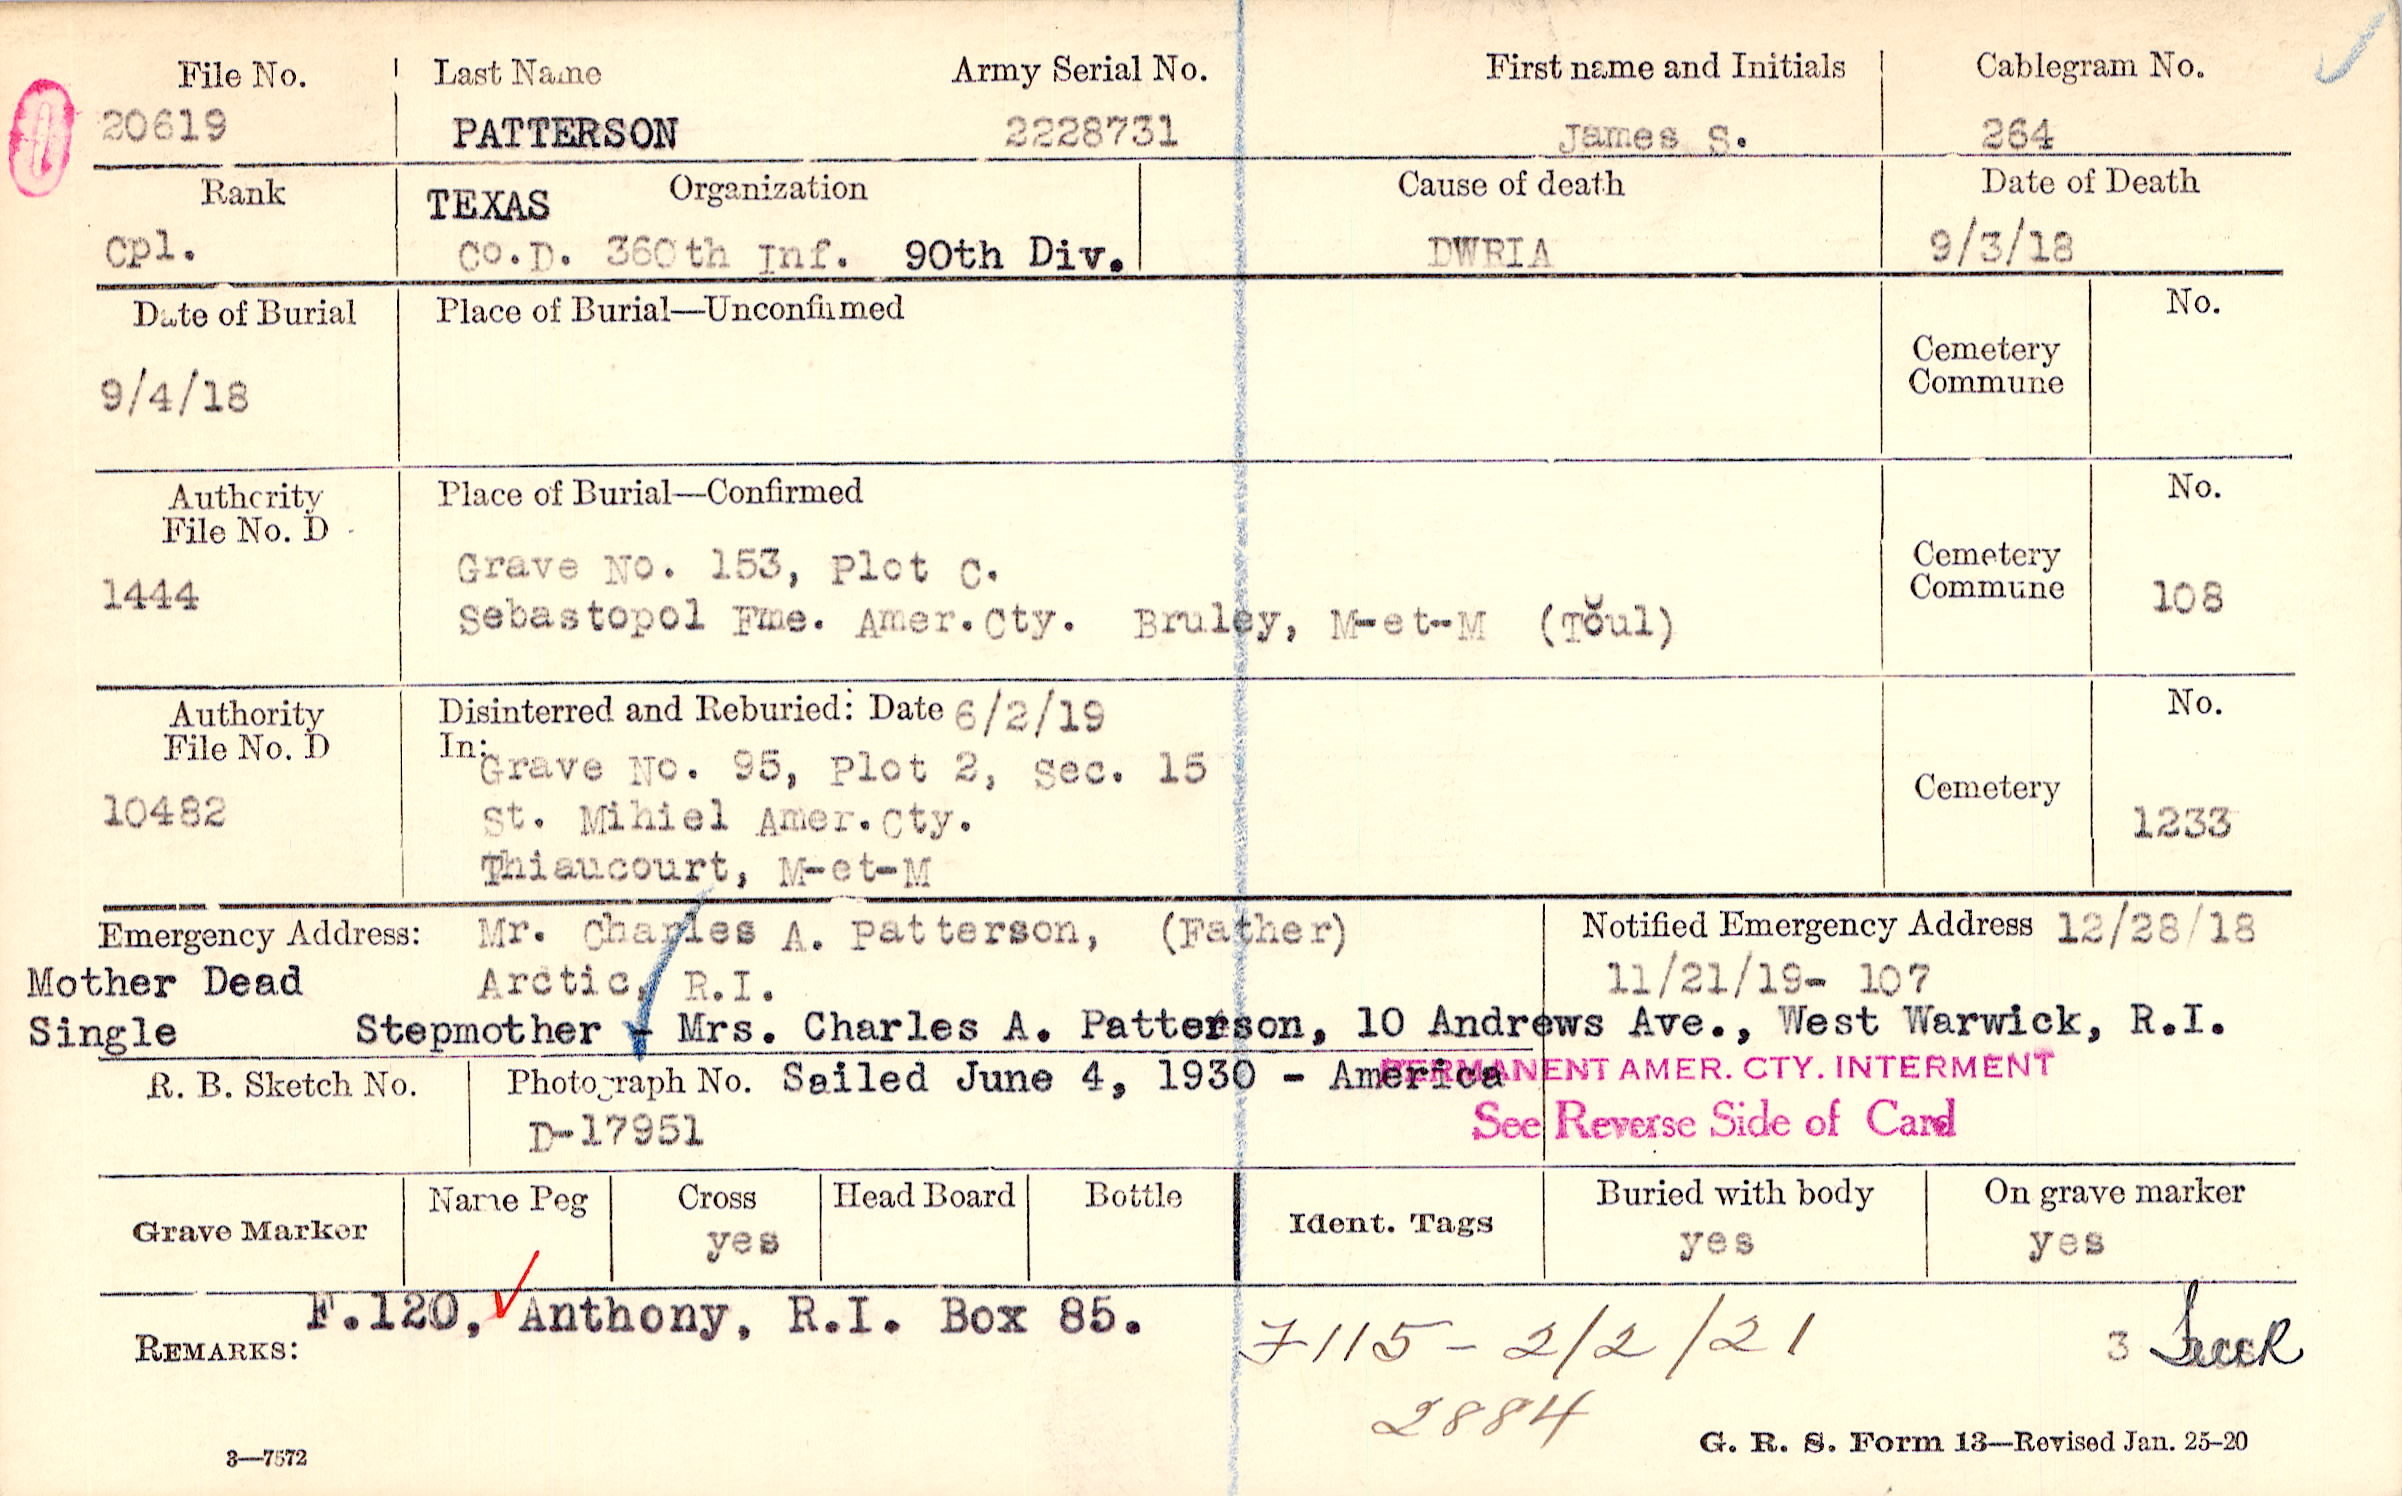 File No. Last Name Army Serial No. First name and Initials Cablegram No.
20619 PATTERSON 2228731 James S. 264
Rank TEXAS Organization Cause of death Date of Death
Cpl. Co.D. 360th Inf. 90th Div. DWRIA 9/3/18
Date of Burial Place of Burial—Unconfirmed No.
Cemetery
Commune
9/4/18
Authority Place of Burial—Confirmed No.
File No. D
Grave No. 153, Plot C. Cemetery
1444 Commune 108
Sebastopol Fme. Amer.Cty. Bruley, M-et-M (Toul)
Authority Disinterred and Reburied: Date 6/2/19 No.
File No. D In:
Grave No. 95, Plot 2, Sec. 15
Cemetery
10482 St. Mihiel Amer.Cty. 1233
Thiaucourt, M-et-M
Emergency Address: Mr. Charles A. Patterson, (Father) Notified Emergency Address 12/28/18
Mother Dead Arctic, R.I. 11/21/19- 107
Single Stepmother - Mrs. Charles A. Patterson, 10 Andrews Ave., West Warwick, R.I.
R. B. Sketch No. Photograph No. Sailed June 4, 1930 - America PERMANENT AMER. CTY. INTERMENT
D-17951 See Reverse Side of Card
Grave Marker Name Peg Cross Head Board Bottle Ident. Tags Buried with body On grave marker
yes yes yes
F.120, Anthony, R.I. Box 85.
REMARKS: F115-2/2/21 3
2884
3—7572 G. R. S. Form 13—Revised Jan. 25-20